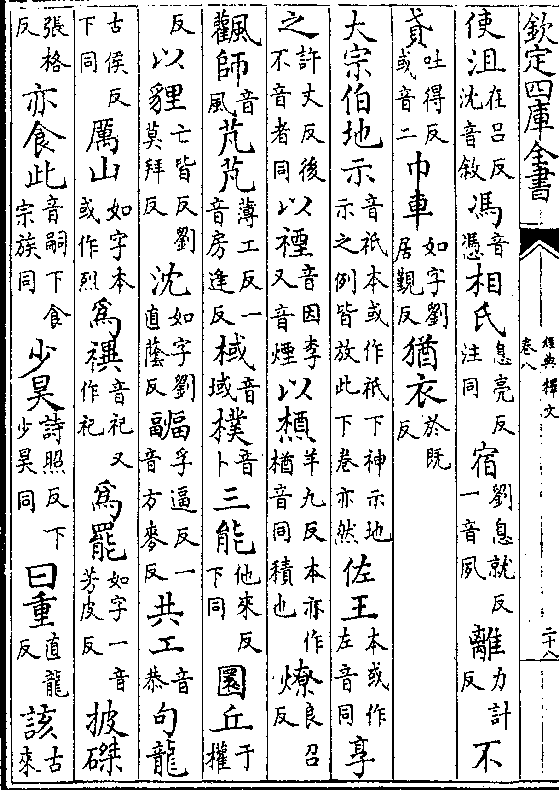 欽定四庫全書
經典釋文
卷八
二十八
使沮在呂反沈音敘馮音憑相氏息亮反注同宿劉息就反一音夙離力計反不
貣吐得反或音二巾車如字劉居覲反猶衣於既反
大宗伯地示音祇本或作祇下神示地示之例皆放此下卷亦然佐王本或作左音同享
之許丈反後不音者同以禋音因李又音煙以槱羊九反本亦作楢音同積也燎良召反
飌師音風芃芃薄工反一音房逢反棫音域樸音卜三能他來反下同圜丘于權
反以貍亡皆反劉莫拜反沈如字劉直蔭反疈孚逼反一音方麥反共工音恭句龍
古侯反下同厲山如字本或作烈爲禩音祀又作祀爲罷如字一音芳皮反披磔
張格反亦食此音嗣下食宗族同少昊詩照反下少昊同曰重直龍反該古來